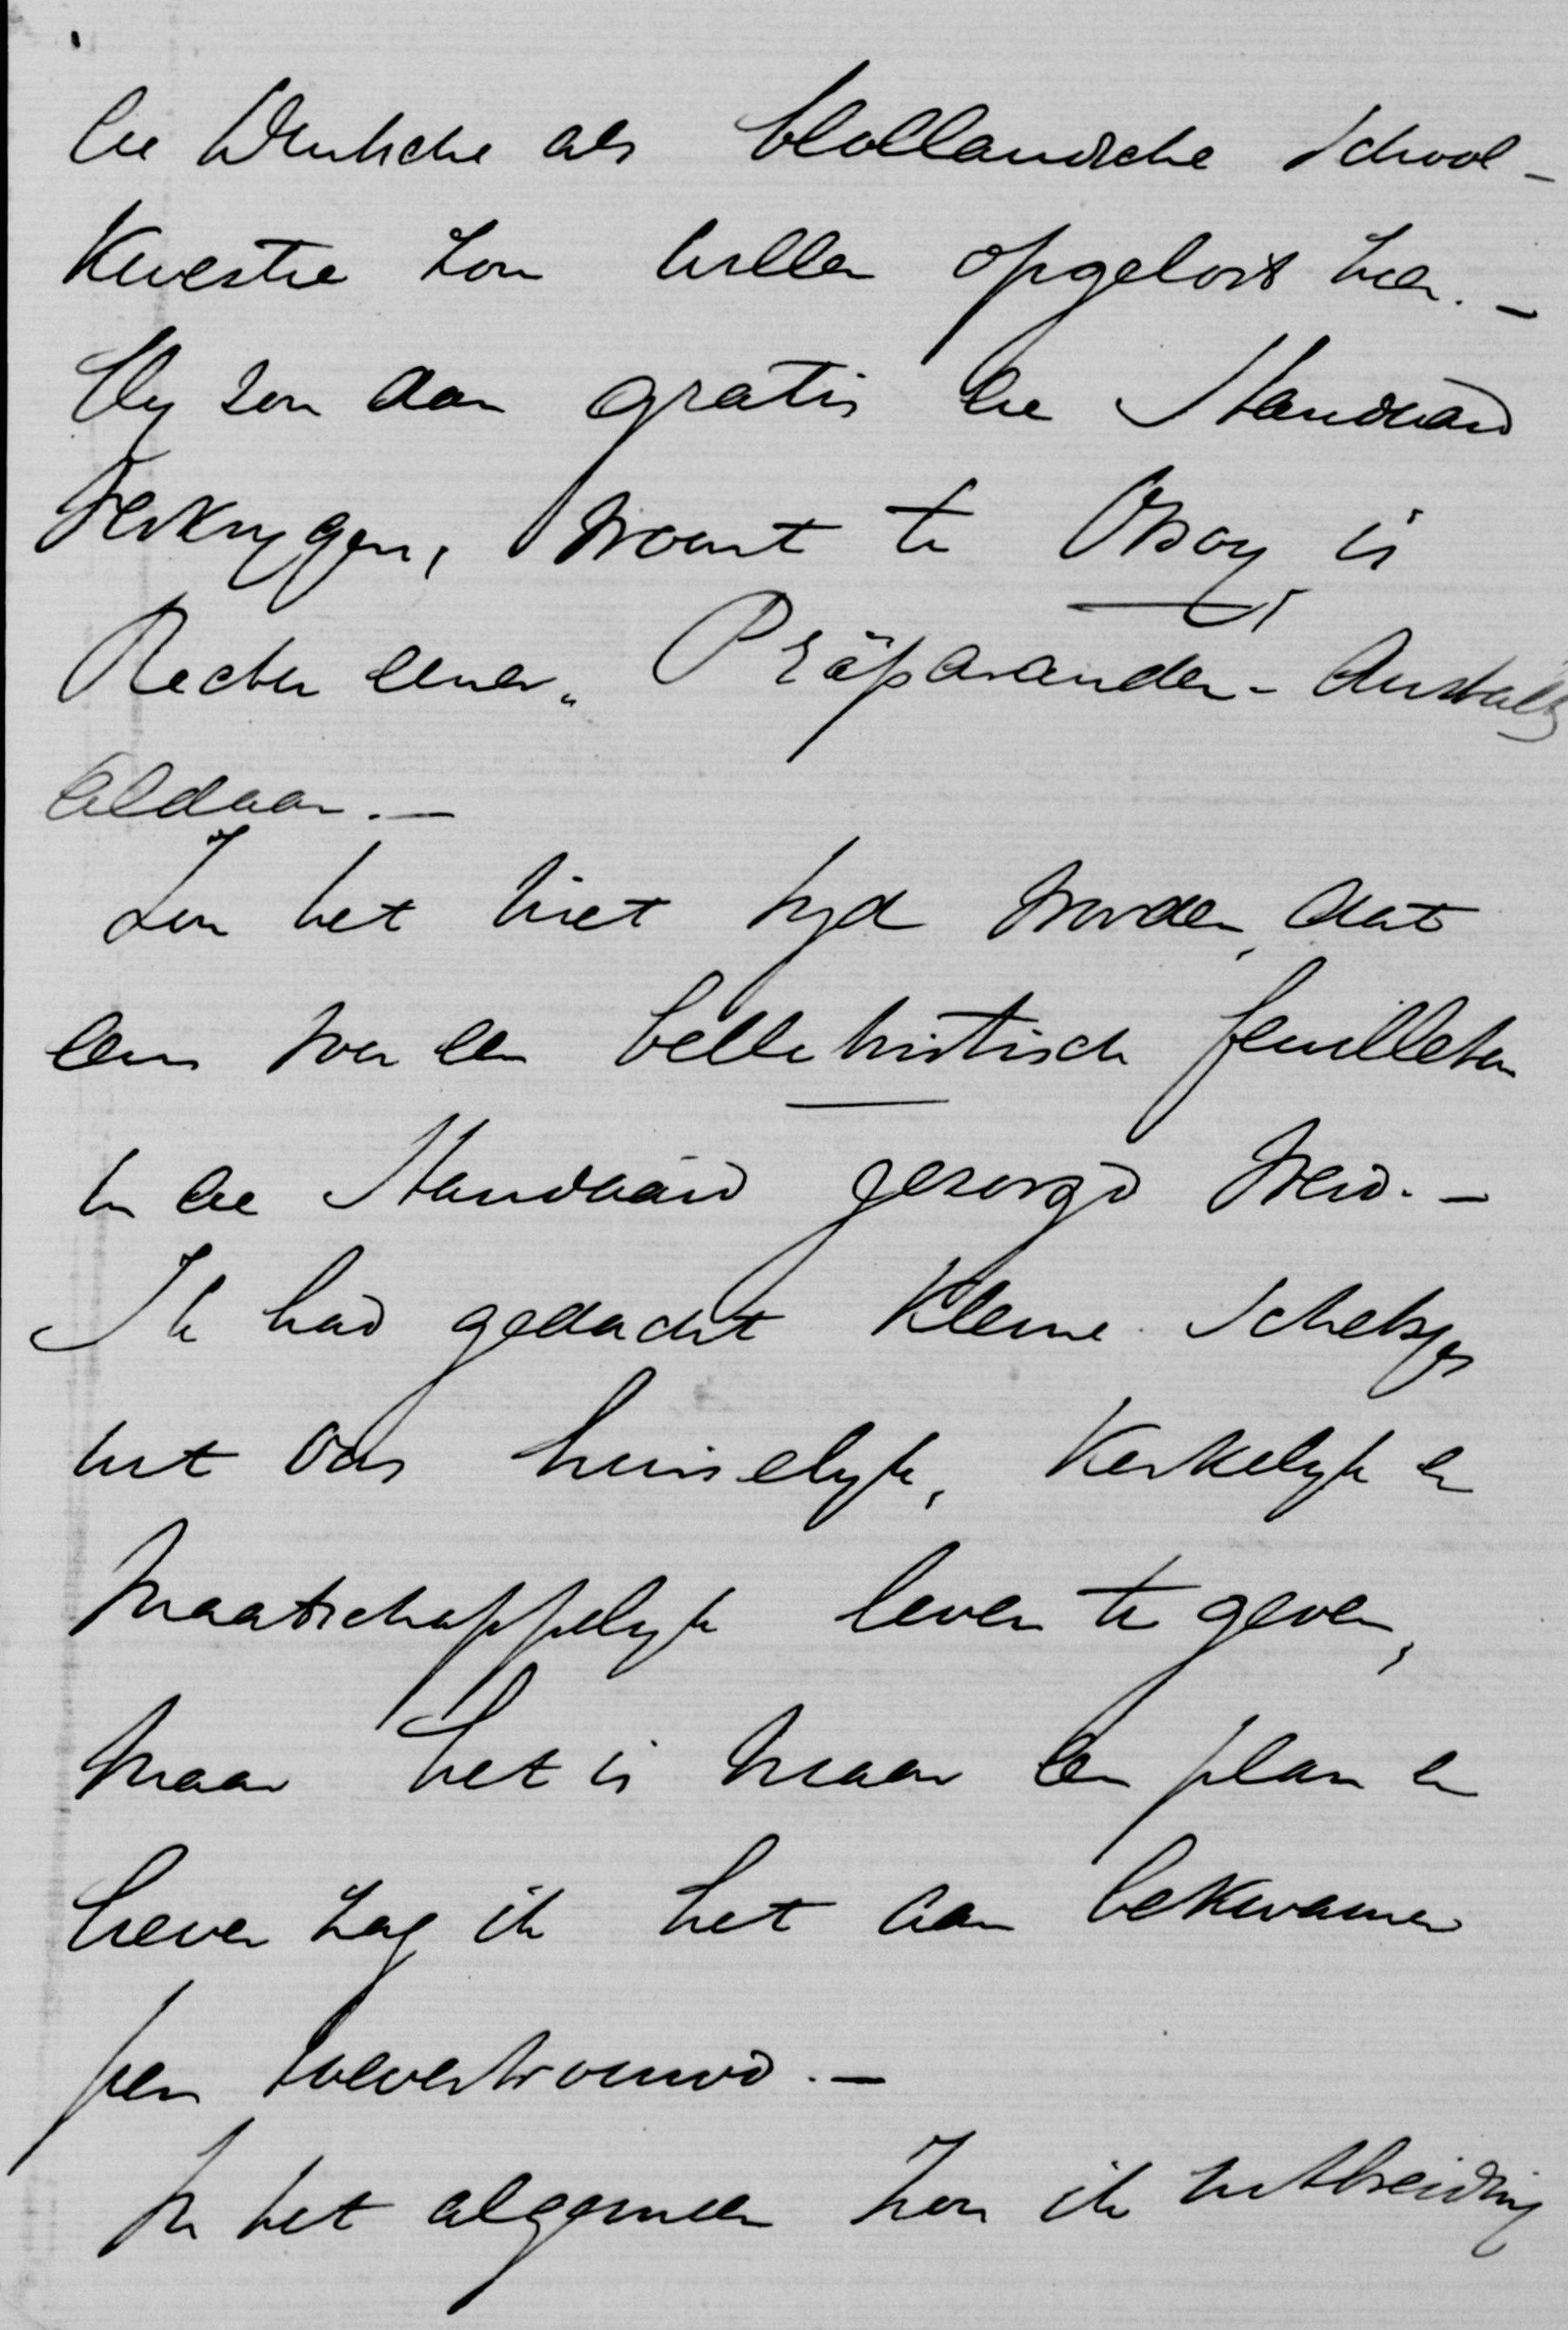 de Deutsche als Hollandsche School-
Kwestie zou willen opgelost zien. -
Hy zou dan gratis de Standaard
verkrygen, want te Orsoy is
Rector eener „Präparanden-Anstalt"
aldaar. -
Zou het niet tyd worden, dat
eens voor een belletristisch feuilleton
in de Standaard gezorgd werd. -
Ik had gedacht kleine schetsjes
uit ons huiselyk, Kerkelyk en
maatschappelyk leven te geven,
maar het is maar een plan en
liever zag ik het aan bekwamer
pen toevertrouwd. -
In het algemeen zou ik uitbreiding